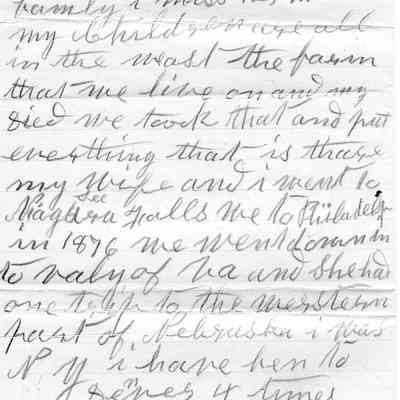 family i miss
my Children are all
in the weast the farm
that we live on and my
died we took that and put
everthing that is thare
my wife and i went to
see
Niagara Falls we to Philadelp
in 1876 we went down in
to valy of va and She had
one trip to the western
part of Nebraska i was
N y i have ben to
Denver 4 times